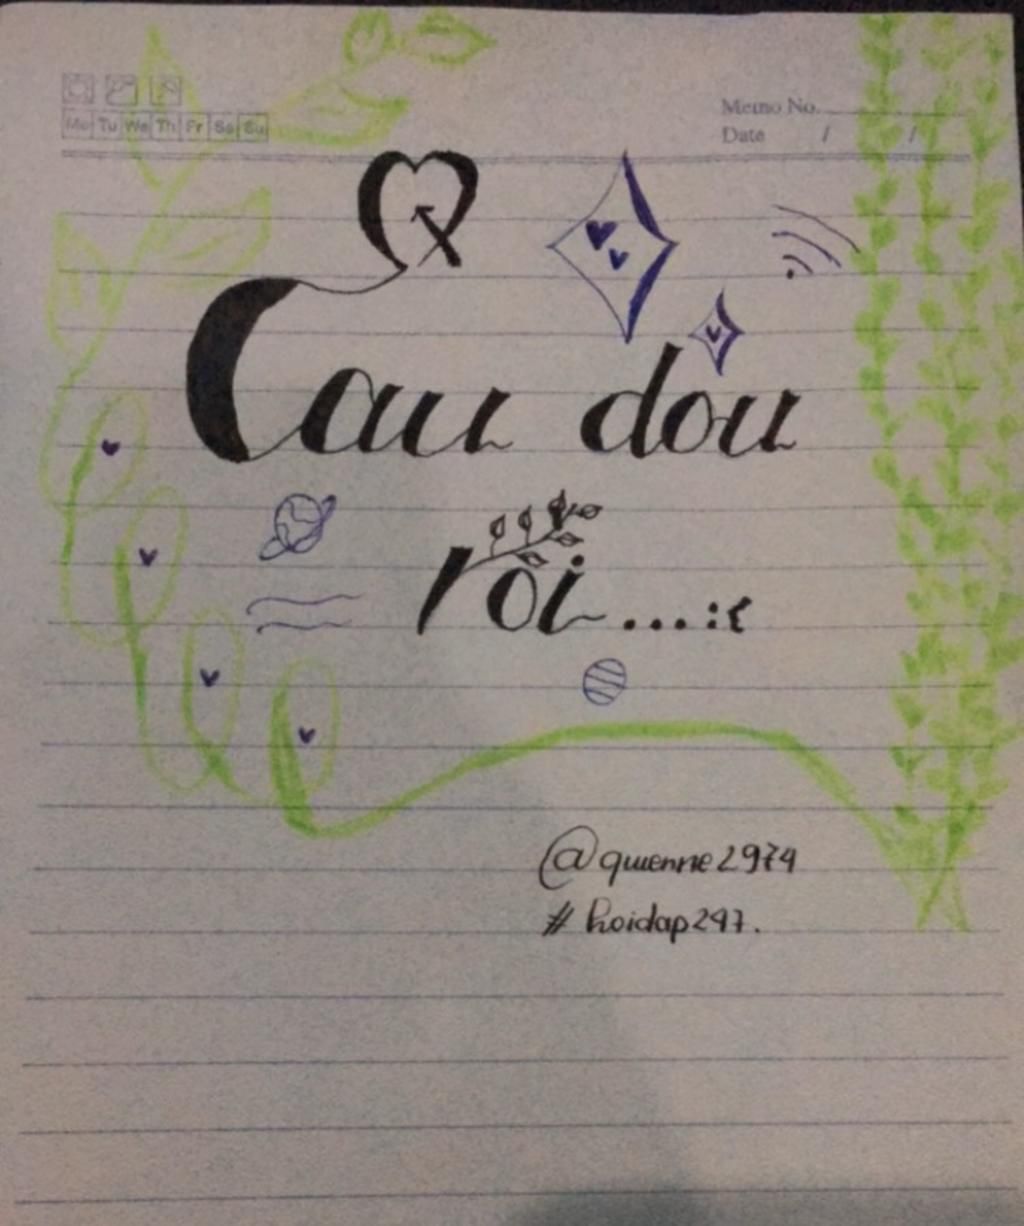 Mo Tu We Th Fr Sa Su
Memo No.
Date / /
Cau dou
roi...:<
@quenne2974
#hoidap247.